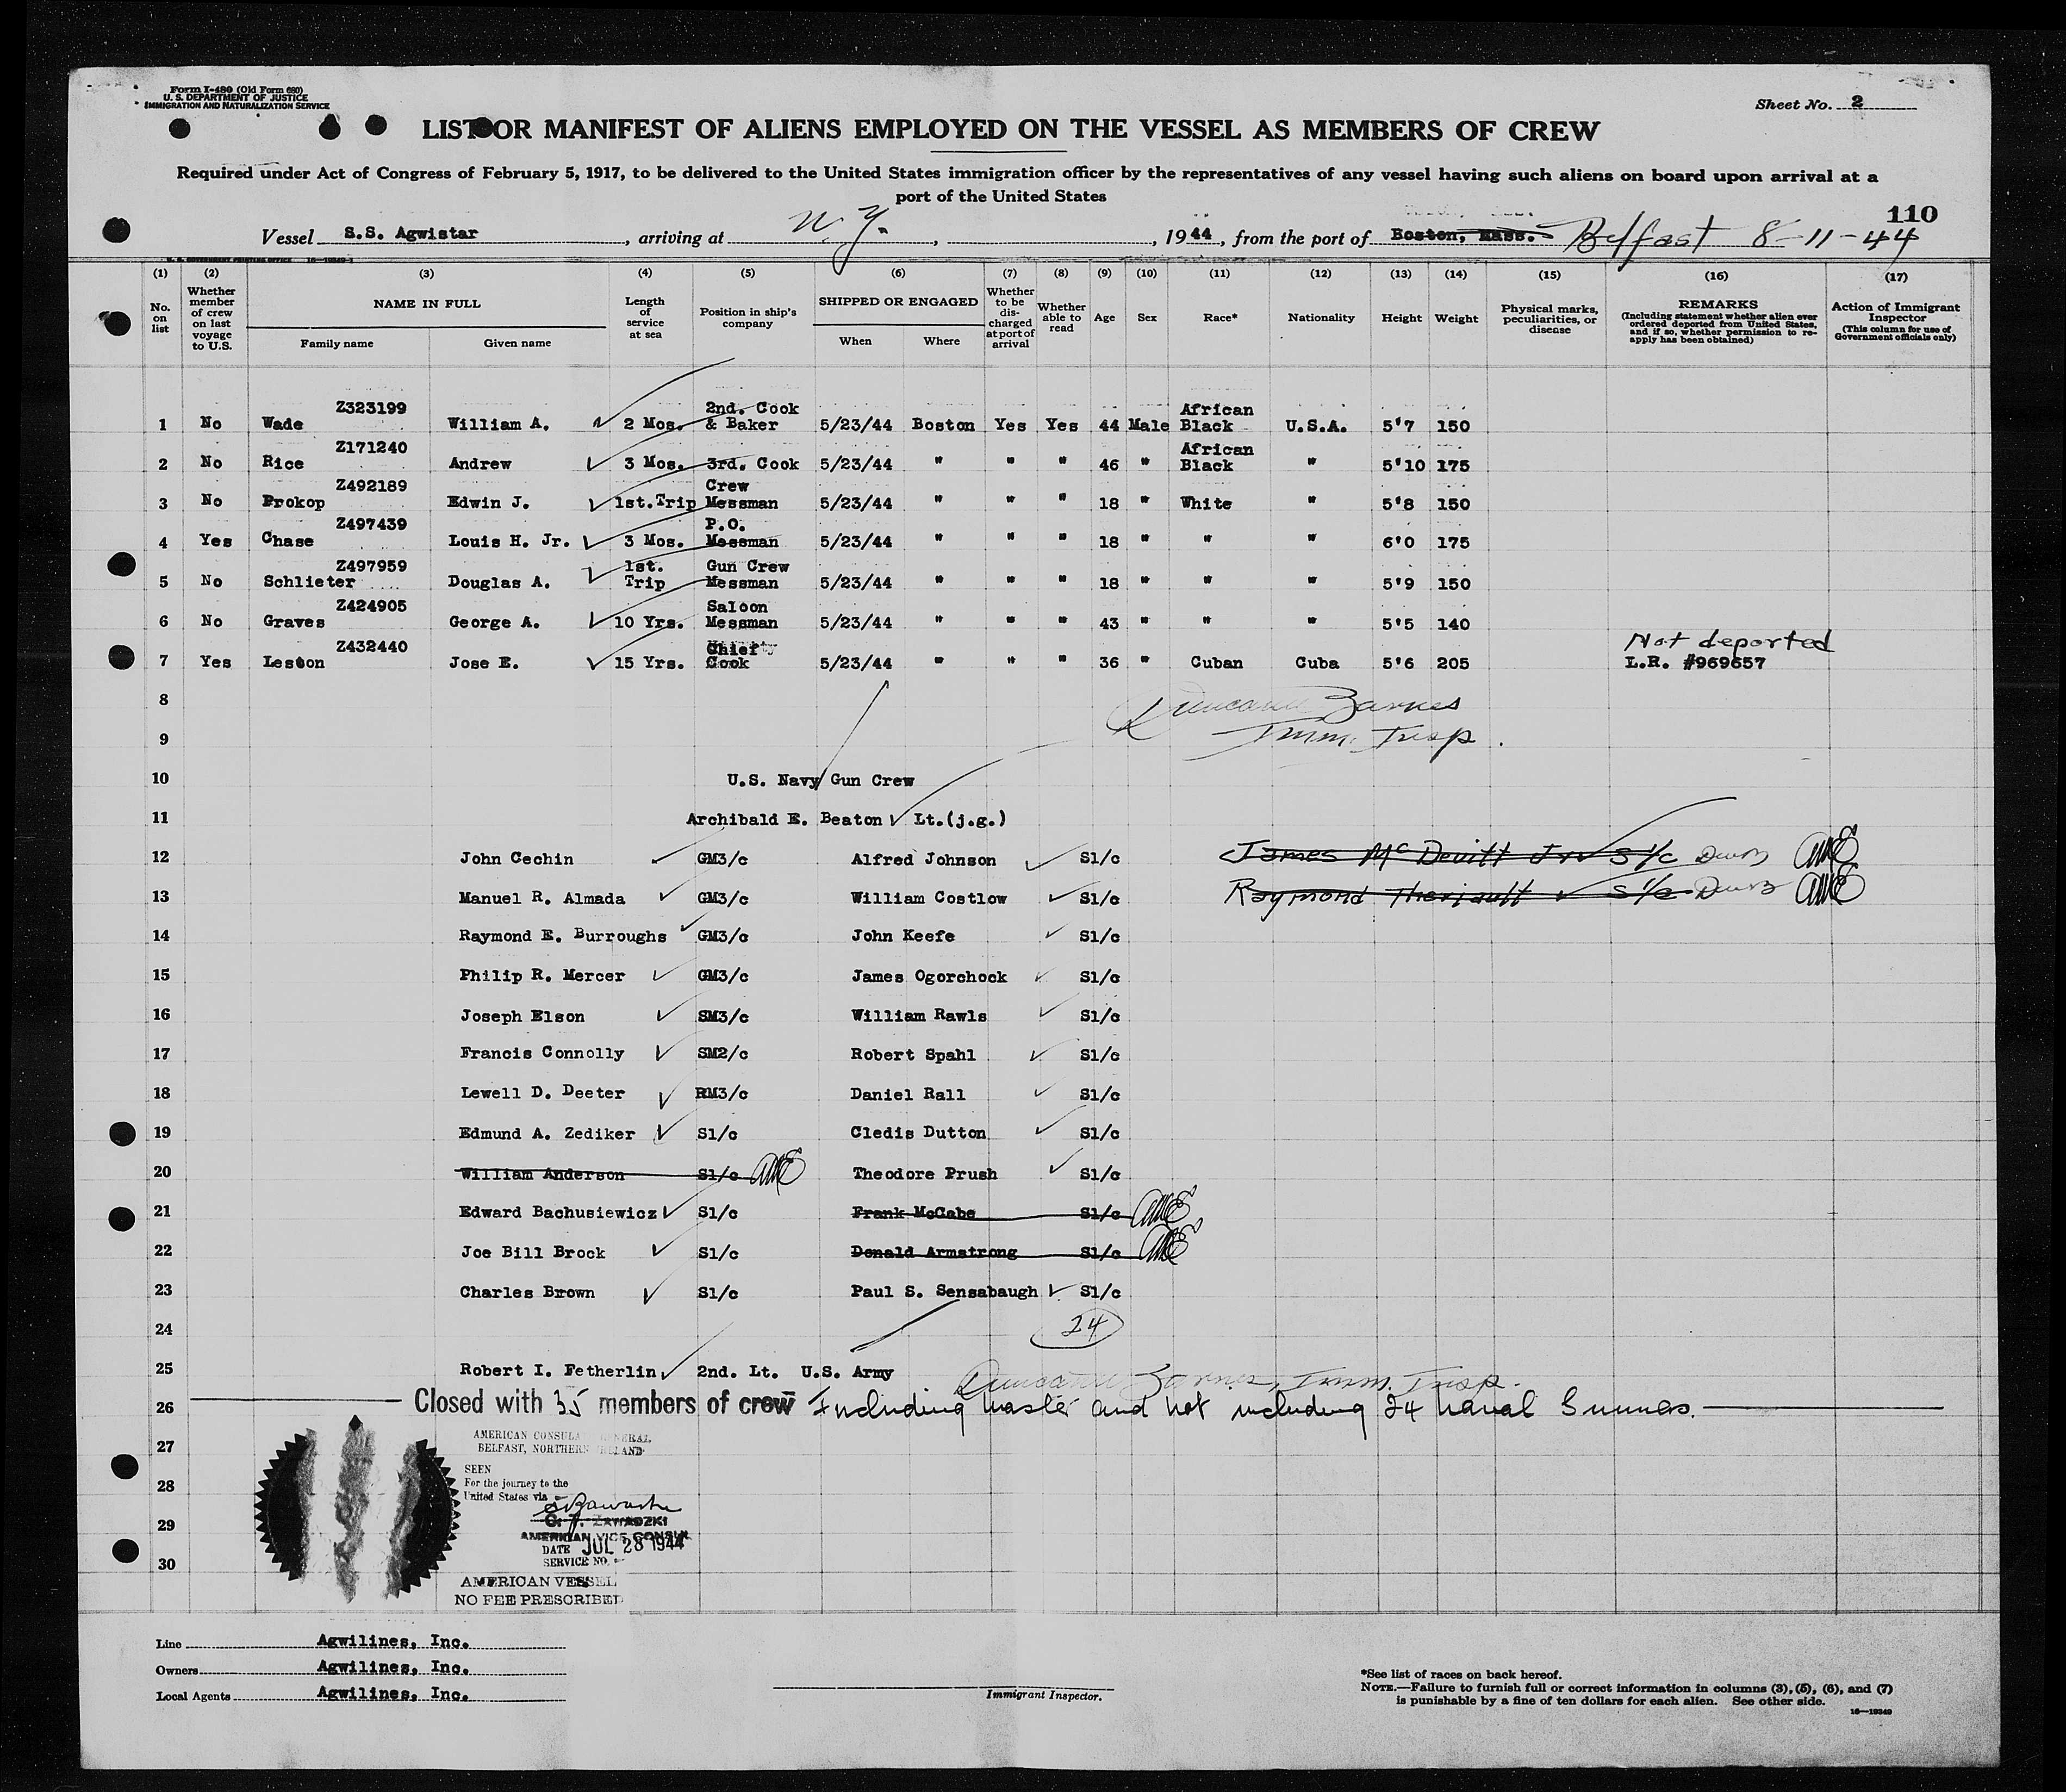 Form I-480 (Old Form 680)
U. S. DEPARTMENT OF JUSTICE
IMMIGRATION AND NATURALIZATION SERVICE
Sheet No. 2
LIST OR MANIFEST OF ALIENS EMPLOYED ON THE VESSEL AS MEMBERS OF CREW
Required under Act of Congress of February 5, 1917, to be delivered to the United States immigration officer by the representatives of any vessel having such aliens on board upon arrival at a
port of the United States
110
Vessel S.S. Agwistar, arriving at N.Y., 1944, from the port of Boston, Mass. Belfast 8-11-44
(1) (2) (3) (4) (5) (6) (7) (8) (9) (10) (11) (12) (13) (14) (15) (16) (17)
No. on list
Whether member of crew on last voyage to U.S.
NAME IN FULL
Family name Given name
Length of service at sea
Position in ship's company
SHIPPED OR ENGAGED
When Where
Whether to be discharged at port of arrival
Whether able to read
Age
Sex
Race*
Nationality
Height
Weight
Physical marks, peculiarities, or disease
REMARKS
(Including statement whether alien ever ordered deported from United States, and if so, whether permission to reapply has been obtained)
Action of Immigrant Inspector
(This column for use of Government officials only)
Z323199 2nd. Cook African
1 No Wade William A. 2 Mos. & Baker 5/23/44 Boston Yes Yes 44 Male Black U.S.A. 5'7 150
Z171240 African
2 No Rice Andrew 3 Mos. 3rd. Cook 5/23/44 " " " 46 " Black " 5'10 175
Z492189 Crew
3 No Prokop Edwin J. 1st. Trip Messman 5/23/44 " " " 18 " White " 5'8 150
Z497439 P.O.
4 Yes Chase Louis H. Jr. 3 Mos. Messman 5/23/44 " " " 18 " " " 6'0 175
Z497959 1st. Gun Crew
5 No Schlieter Douglas A. Trip Messman 5/23/44 " " " 18 " " " 5'9 150
Z424905 Saloon
6 No Graves George A. 10 Yrs. Messman 5/23/44 " " " 43 " " " 5'5 140
Z432440 Chief Not deported
7 Yes Leston Jose E. 15 Yrs. Cook 5/23/44 " " " 36 " Cuban Cuba 5'6 205 L.R. #969657
8 Duncan Barnes
9 Imm. Insp.
10 U.S. Navy Gun Crew
11 Archibald E. Beaton Lt.(j.g.)
12 John Cechin GM3/c Alfred Johnson S1/c James McDevitt Jr S1/c
13 Manuel R. Almada GM3/c William Costlow S1/c Raymond Theriault S1/c
14 Raymond E. Burroughs GM3/c John Keefe S1/c
15 Philip R. Mercer GM3/c James Ogorchock S1/c
16 Joseph Elson SM3/c William Rawls S1/c
17 Francis Connolly SM2/c Robert Spahl S1/c
18 Lewell D. Deeter RM3/c Daniel Rall S1/c
19 Edmund A. Zediker S1/c Cledis Dutton S1/c
20 William Anderson S1/c Theodore Prush S1/c
21 Edward Bachusiewicz S1/c Frank McCabe S1/c
22 Joe Bill Brock S1/c Donald Armstrong S1/c
23 Charles Brown S1/c Paul S. Sensabaugh S1/c
24 24
25 Robert I. Fetherlin 2nd. Lt. U.S. Army
Duncan Barnes, Imm. Insp.
26 Closed with 35 members of crew Including master and not including 24 naval Gunners.
27
28
29
30
AMERICAN CONSULATE GENERAL
BELFAST, NORTHERN IRELAND
SEEN
For the journey to the
United States via
C. T. ZAWADZKI
AMERICAN VICE CONSUL
DATE JUL 28 1944
SERVICE NO.
AMERICAN VESSEL
NO FEE PRESCRIBED
Line Agwilines, Inc.
Owners Agwilines, Inc.
Local Agents Agwilines, Inc.
Immigrant Inspector.
*See list of races on back hereof.
NOTE.—Failure to furnish full or correct information in columns (3), (5), (6), and (7)
is punishable by a fine of ten dollars for each alien. See other side.
16—19349